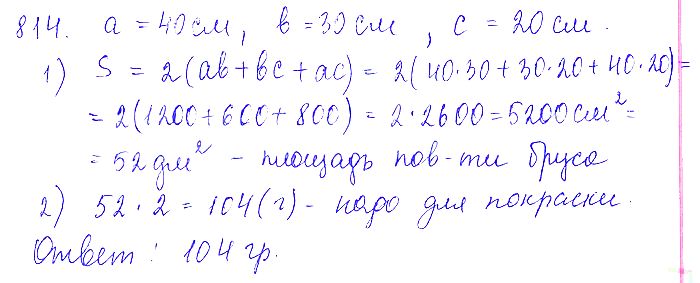 814. a = 40 см, в = 30 см, с = 20 см.
1) S = 2(ав+вс+ас) = 2(40·30+30·20+40·20)=
= 2(1200+600+800) = 2·2600=5200см²=
= 52 дм² - площадь пов-ти бруса
2) 52·2 = 104(г) - надо для покраски.
Ответ: 104 гр.